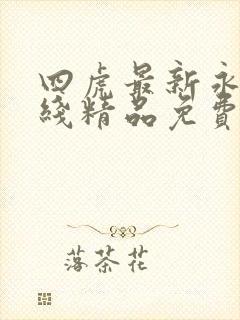 四虎最新永
线精品免費
落茶花